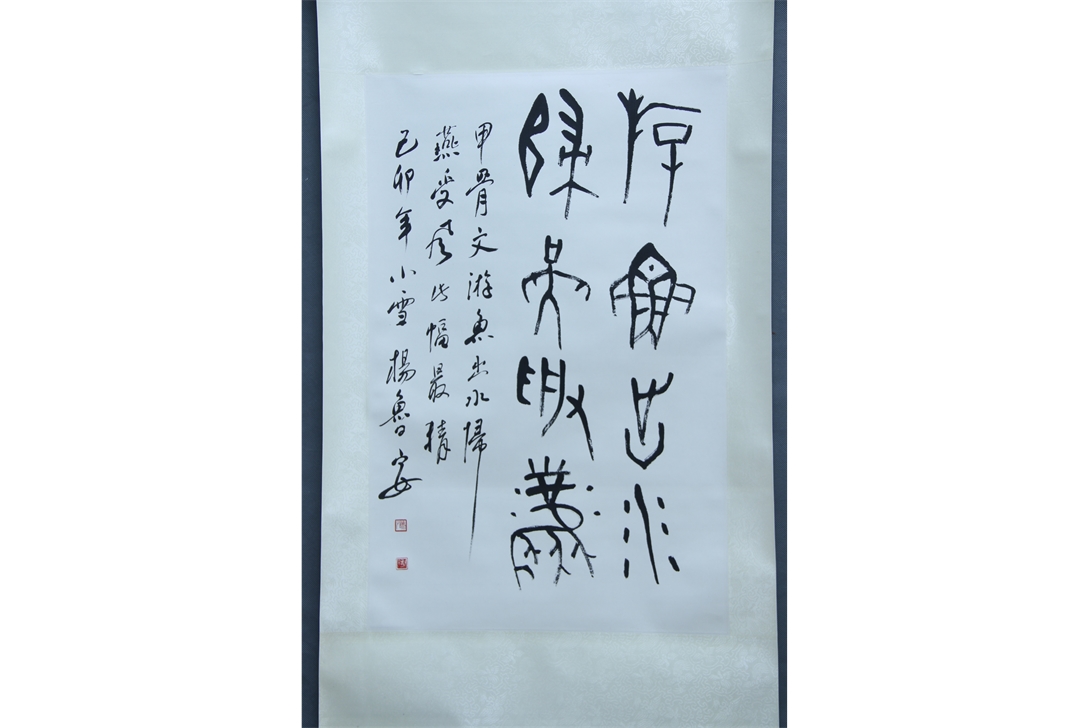 游魚出水
歸燕受風
甲骨文游魚出水歸
燕受風此幅最精
己卯年小雪楊魯安